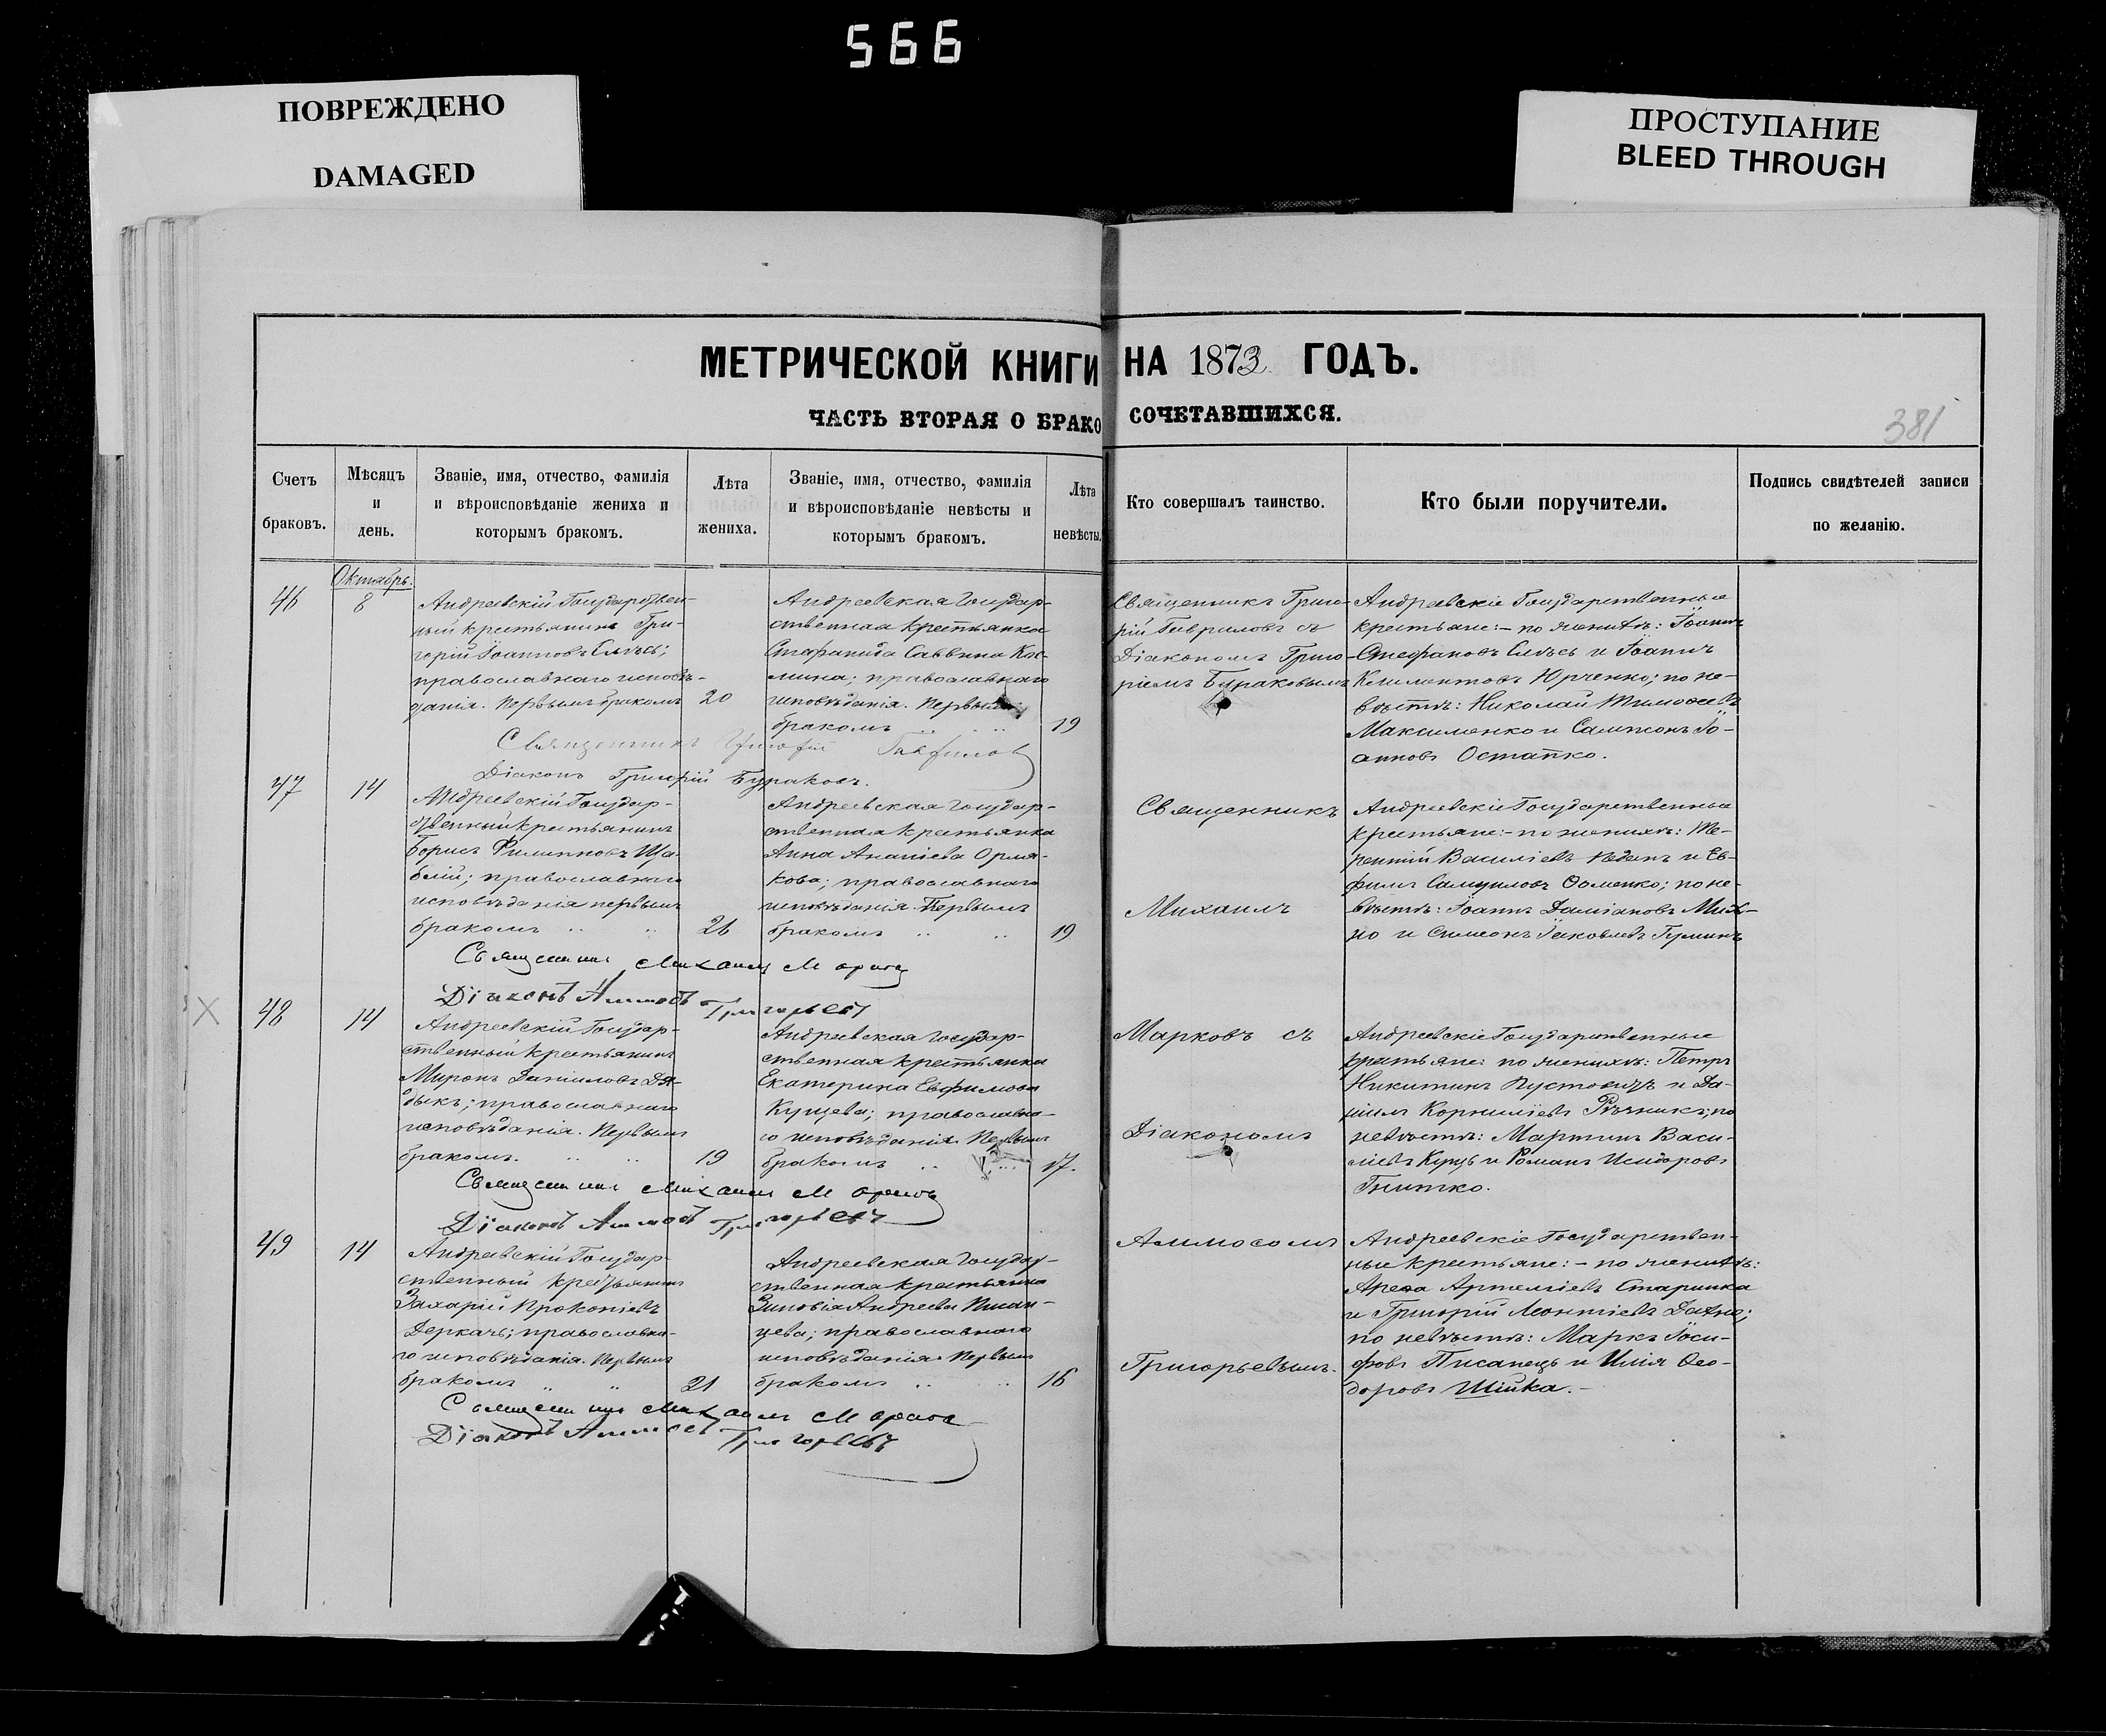 566
ПОВРЕЖДЕНО
DAMAGED
ПРОСТУПАНИЕ
BLEED THROUGH
МЕТРИЧЕСКОЙ КНИГИ НА 1873 ГОДЪ.
ЧАСТЬ ВТОРАЯ О БРАКОСОЧЕТАВШИХСЯ.
381
Счетъ
браковъ.
Мѣсяцъ
и
день.
Званіе, имя, отчество, фамилія
и вѣроисповѣданіе жениха и
которымъ бракомъ.
Лѣта
жениха.
Званіе, имя, отчество, фамилія
и вѣроисповѣданіе невѣсты и
которымъ бракомъ.
Лѣта
невѣсты.
Кто совершалъ таинство.
Кто были поручители.
Подпись свидѣтелей записи
по желанію.
Октябрь.
46
8
Андреевскій Государствен-
ный крестьянинъ Гри-
горій Іоанновъ
православнаго исповѣ-
данія. Первымъ бракомъ
20
Андреевская государ-
ственная крестьянка
Стефанида Саввина Кос-
мина; православнаго
исповѣданія. Первымъ
бракомъ
19
Священникъ Григо-
рій Гавриловъ съ
Діакономъ Григо-
ріемъ Бураковымъ
Андреевскіе Государственные
крестьяне:- по женихѣ: Іоаннъ
Стефановъ и Іоаннъ
Климентовъ Юрченко; по не-
вѣстѣ: Николай Тимофеевъ
Максименко и Сампсонъ Іо-
анновъ Остапко.
Священникъ Григорій Гавриловъ
Діаконъ Григорій Бураковъ.
47
14
Андреевскій Государ-
ственный крестьянинъ
Борисъ Филипповъ Ща-
бій; православнаго
исповѣданія первымъ
бракомъ
21
Андреевская государ-
ственная крестьянка
Анна Ананіева Орля-
кова; православнаго
исповѣданія. Первымъ
бракомъ
19
Священникъ
Михаилъ
Андреевскіе Государственные
крестьяне:- по женихѣ: Те-
рентій Василіевъ и Ев-
фимъ Самуиловъ по не-
вѣстѣ: Іоаннъ Даміановъ Мих-
но и Симеонъ Іаковлевъ
Священникъ Михаилъ Марковъ
Діаконъ Аммосъ Григорьевъ
Х
48
14
Андреевскій Государ-
ственный крестьянинъ
Миронъ Даніиловъ Дя-
дыкъ; православнаго
исповѣданія. Первымъ
бракомъ.
19
Андреевская государ-
ственная крестьянка
Екатерина Евфимова
Купцева; православна-
го исповѣданія. Первымъ
бракомъ
17.
Марковъ съ
Діакономъ
Андреевскіе Государственные
крестьяне: по женихѣ: Петръ
Никитинъ и Да-
ніилъ Корниліевъ Рѣзникъ; по
невѣстѣ: Мартинъ Васи-
ліевъ Купць и Романъ Исидоровъ
Гнитко.
Священникъ Михаилъ Марковъ
Діаконъ Аммосъ Григорьевъ
49
14
Андреевскій Государ-
ственный крестьянинъ
Захарій Прокопіевъ
Деркачъ; православна-
го исповѣданія. Первымъ
бракомъ
21
Андреевская государ-
ственная крестьянка
Зиновія Андреева Писан-
цева; православнаго
исповѣданія. Первымъ
бракомъ
16
Аммосомъ
Григорьевымъ.
Андреевскіе Государствен-
ные крестьяне:- по женихѣ:
Арефа Артеміевъ Старинка
и Григорій Леонтіевъ Дахно;
по невѣстѣ: Маркъ Іоси-
фовъ Писанецъ и Илія Ѳео-
доровъ Шійка.-
Священникъ Михаилъ Марковъ
Діаконъ Аммосъ Григорьевъ